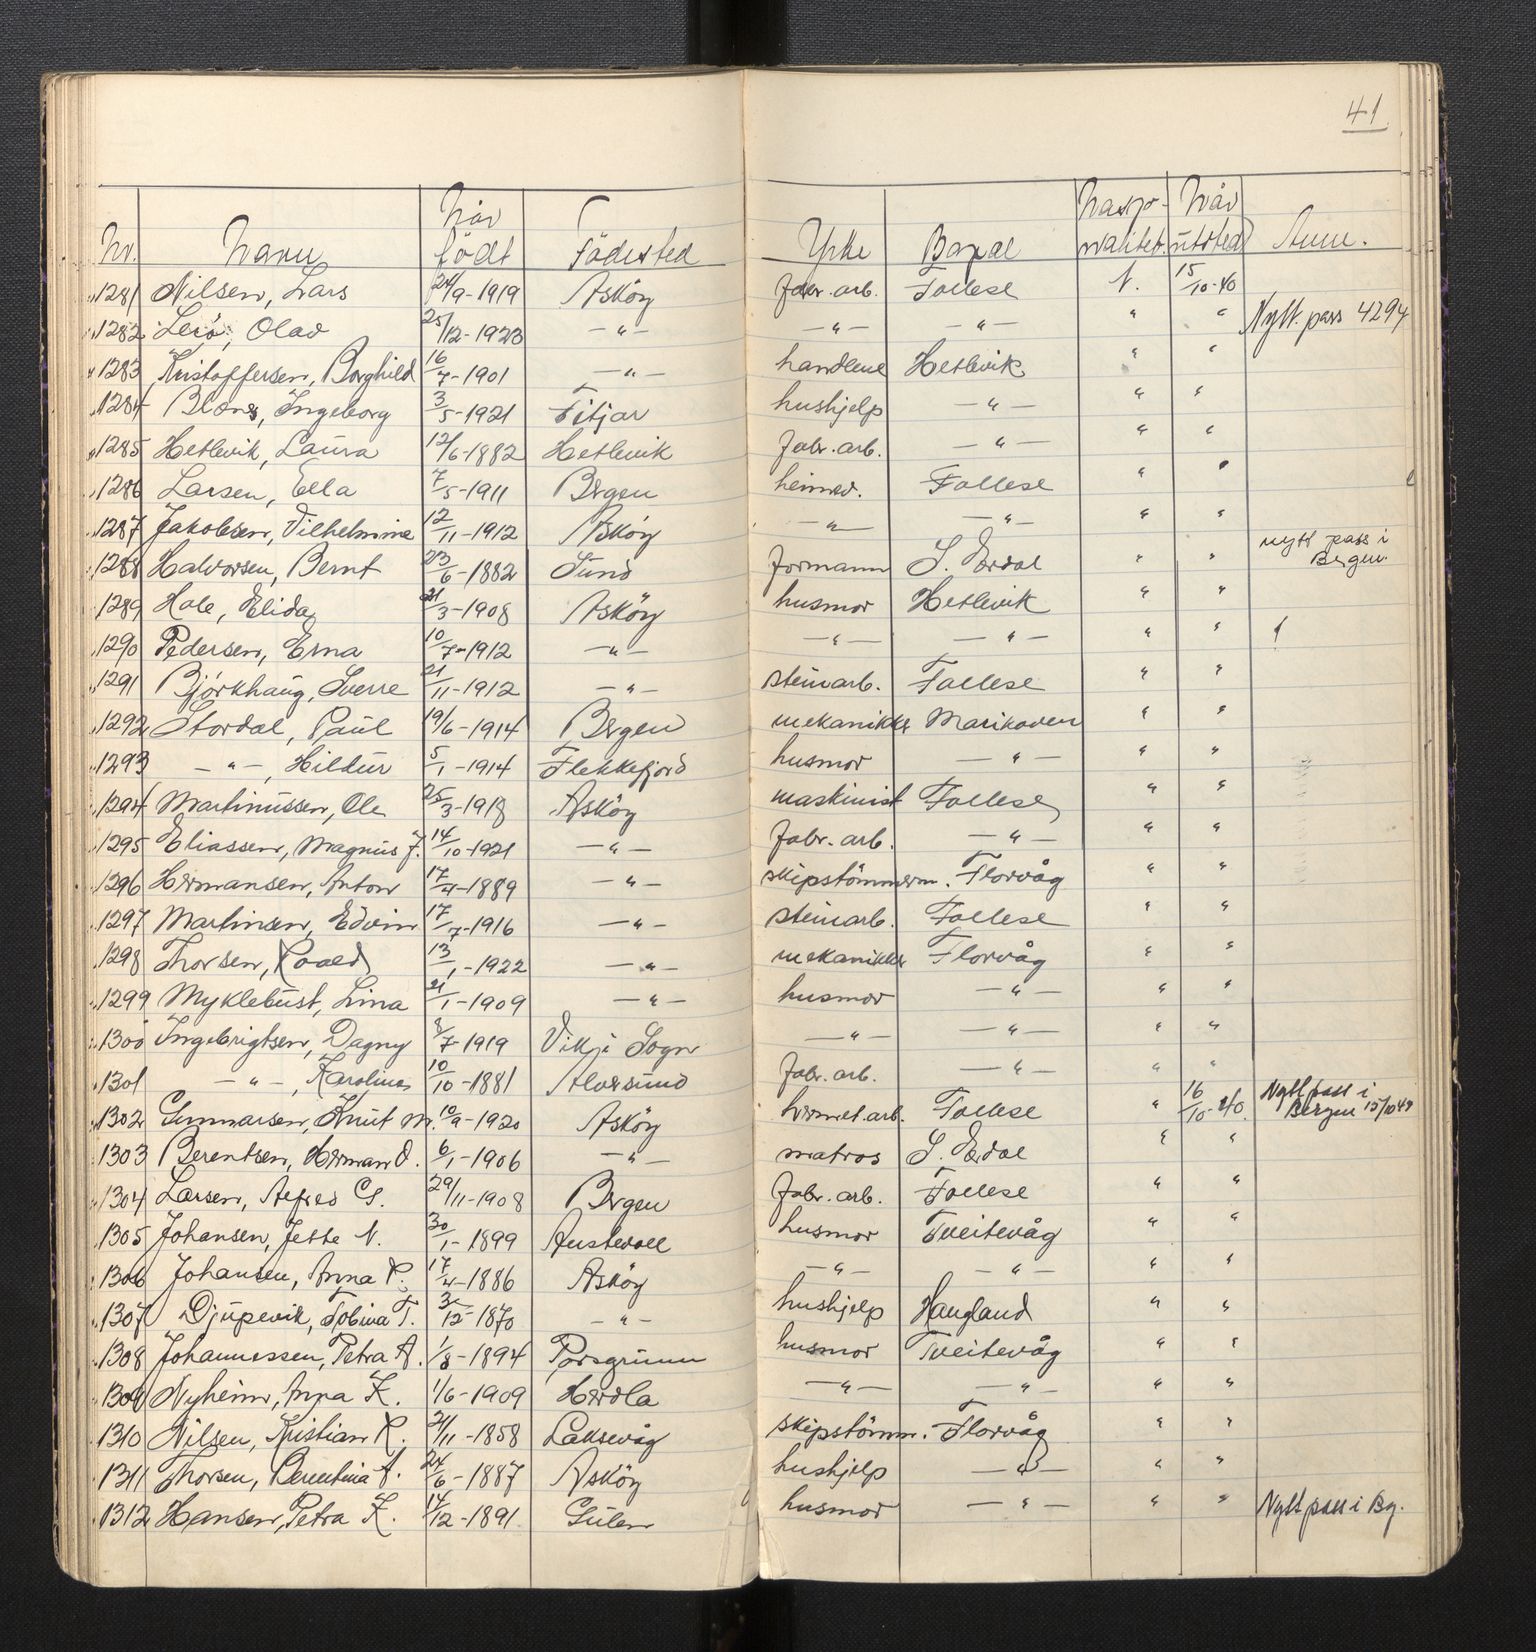 41
Nr. Navn Når født Födested Yrke Bopæl Nasjonalitet. Når utsted Anm.
1281 Nilsen, Lars 24/9-1919 Asköy Fabr. arb. Follese N. 15/10-40
1282 Olav 25/12-1923 -"- -"- -"- " " Nytt pass 4294
1283 Kristoffersen, Borghild 16/7-1901 -"- handlene Hetlevik " "
1284 Ingeborg 3/5-1921 Fitjar hushjelp -"- " "
1285 Hetlevik, Laura 12/6-1882 Hetlevik Fabr. arb. -"- " "
1286 Larsen, Ella 7/5-1911 Bergen heimev. Follese " "
1287 Jakobsen, Vilhelmine 12/11-1912 Asköy -"- -"- " "
1288 Halvorsen, Bernt 23/6-1882 Sund formann S. Erdal " " nytt pass i Bergen.
1289 Hole, Elida 21/3-1908 Asköy husmor Hetlevik " "
1290 Pedersen, Erna 10/7-1912 -"- -"- -"- " "
1291 Björkhaug, Sverre 21/11-1912 -"- steinarb. Follese " "
1292 Stordal, Paul 19/6-1914 Bergen mekanikker Marikoven " "
1293 -"-, Hildur 5/1-1914 Flekkefjord husmor -"- " "
1294 Martinussen, Ole 25/3-1918 Asköy maskinist Follese " "
1295 Eliassen, Magnus J. 14/10-1921 -"- Fabr. arb. -"- " "
1296 Hermansen, Anton 17/4-1889 -"- skipstömmerm. Florvåg " "
1297 Martinsen, Edvin 17/7-1916 -"- steinarb. Follese " "
1298 Thorsen, Roald 13/1-1922 -"- mekanikker Florvåg " "
1299 Myklebust, Lina 21/1-1909 -"- husmor -"- " "
1300 Ingebrigtsen, Dagny 8/7-1919 Vik i Sogn -"- -"- " "
1301 -"-, Karoline 10/10-1881 Alversund Fabr. arb. -"- " "
1302 Gunnarsen, Knut M. 10/9-1920 Asköy hermet. arb. Follese " 16/10-40. Nytt pass i Bergen 15/10 49
1303 Berentsen, Herman O. 6/1-1906 -"- matros S. Erdal " "
1304 Larsen, Alfred G. 29/11-1908 Bergen Fabr. arb. Follese " "
1305 Johansen, Jette N. 30/1-1899 Austevoll husmor Tveitevåg " "
1306 Johansen, Anna P. 17/4-1886 Asköy -"- -"- " "
1307 Djupevik, Tobina T. 3/12-1870 -"- hushjelp Haugland " "
1308 Johannessen, Petra A. 1/8-1894 Porsgrunn husmor Tveitevåg " "
1309 Nyheim, Anna K. 1/6-1909 Herdla -"- -"- " "
1310 Nilsen, Kristian R. 21/11-1858 Laksevåg skipstömm. Florvåg " "
1311 Thorsen, Berentina A. 24/6-1887 Asköy hushjelp -"- " "
1312 Hansen, Petra K. 14/12-1891 Gulen husmor -"- " " Nytt pass i Bg.